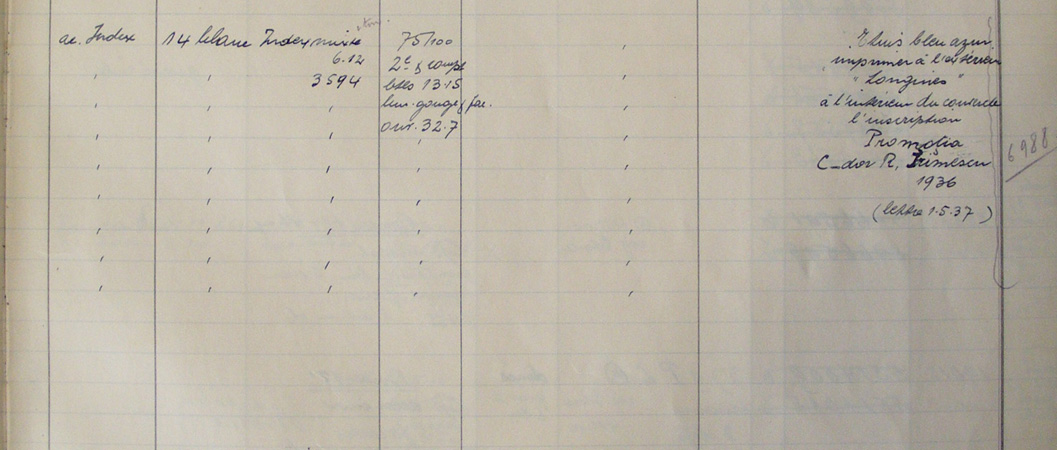 ac. Index 14 blanc Index mixte 75/100
6.12 2e & compl
3594 btes 13.15
lun. gouge & fac.
ouv. 32.7
Etuis bleu azur
imprimer à l'extérieur
"Longines"
à l'intérieur du couvercle
l'inscription
Promotia
C-dor R. Irimescu
1936
(lettre 1.5.37)
6988